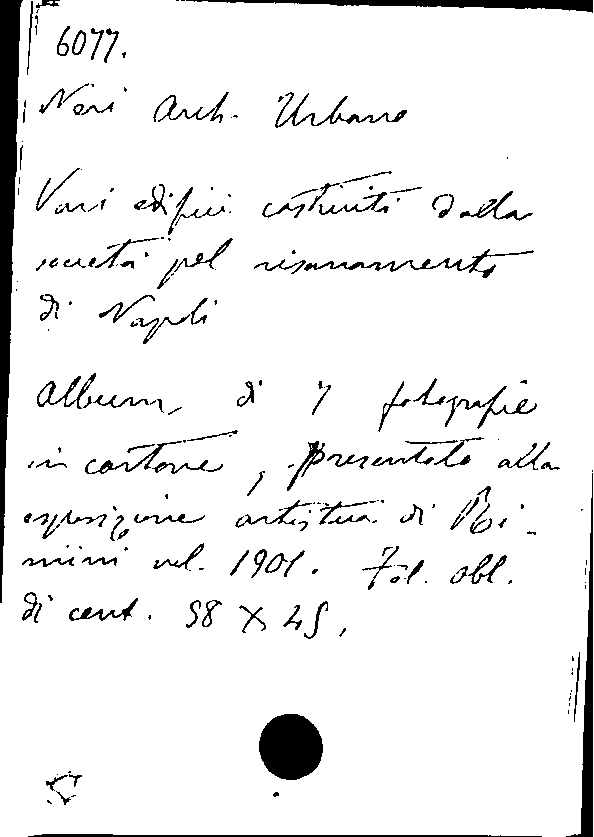 6077.
Neri Arch. Urbano
Vari edifici costruiti dalla
società pel risanamento
di Napoli
Album di 7 fotografie
in cartone, presentato alla
esposizione artistica di Ri-
mini nel 1901. Fol. obl.
di cent. 58 X 45.